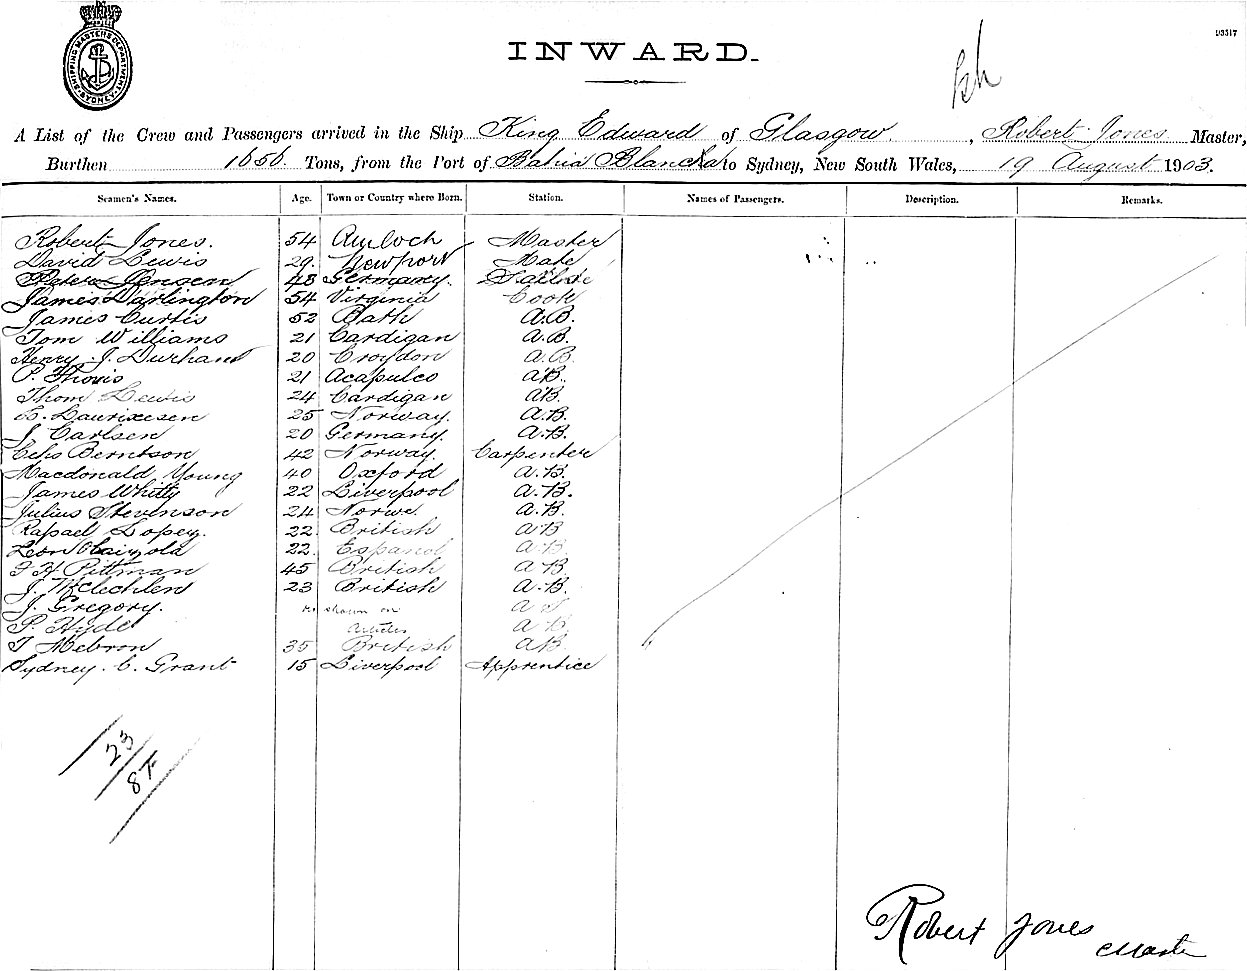 SHIPPING MASTER'S DEPARTMENT SYDNEY
INWARD.
A List of the Crew and Passengers arrived in the Ship King Edward of Glasgow, Robert Jones Master,
Burthen 1656. Tons, from the Port of Bahia Blanca to Sydney, New South Wales, 19 August 1903.
Seamen's Names. Age. Town or Country where Born. Station. Names of Passengers. Description. Remarks.
Robert Jones. 54 Amloch Master
David Lewis 29. Newport Mate
Peter Jensen 48 Germany.
James Darlington 54 Virginia Cook
James Curtis 52 Bath A.B.
Tom Williams 21 Cardigan A.B.
Henry J. Durham 20 Croydon A.B.
P. 21 Acapulco AB.
Thom Lewis 24 Cardigan AB.
25 Norway. A.B.
J. Carlsen 20 Germany. A.B.
Berntson 42 Norway. Carpenter
Macdonald Young 40 Oxford A.B.
James Whitty 22 Liverpool A.B.
Julius Stevenson 24 Norwe A.B.
Rapael Lopey. 22 British AB
Leon 22. Espanol AB
Pittman 45 British AB
J. McClechlen 23 British A.B.
J. Gregory. shown on
P. Hyde Articles AB
T Mebron 35 British AB
Sydney. C. Grant 15 Liverpool Apprentice
23
Robert Jones
Master